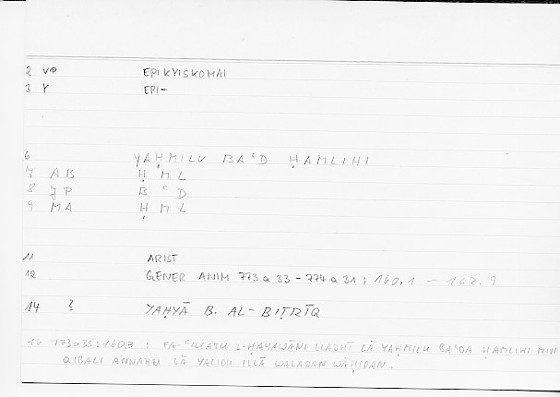 2 VP EPIKYISKOMAI
3 Y EPI-
6 YAḤMILU BAʿD ḤAMLIHI
7 AB ḤML
8 JP BʿD
9 MA ḤML
11 ARIST
12 GENER ANIM 773a33-774a31; 160.1 - 162.9
14 ? YAḤYĀ B. AL-BIṬRĪQ
16 773a35; 160.3 : FA-ʿILLATU L-ḤAYAWĀNI LLADHĪ LĀ YAḤMILU BAʿDA ḤAMLIHI MIN
QIBALI ANNAHU LĀ YALIDU ILLĀ WALADAN WĀḤIDAN.